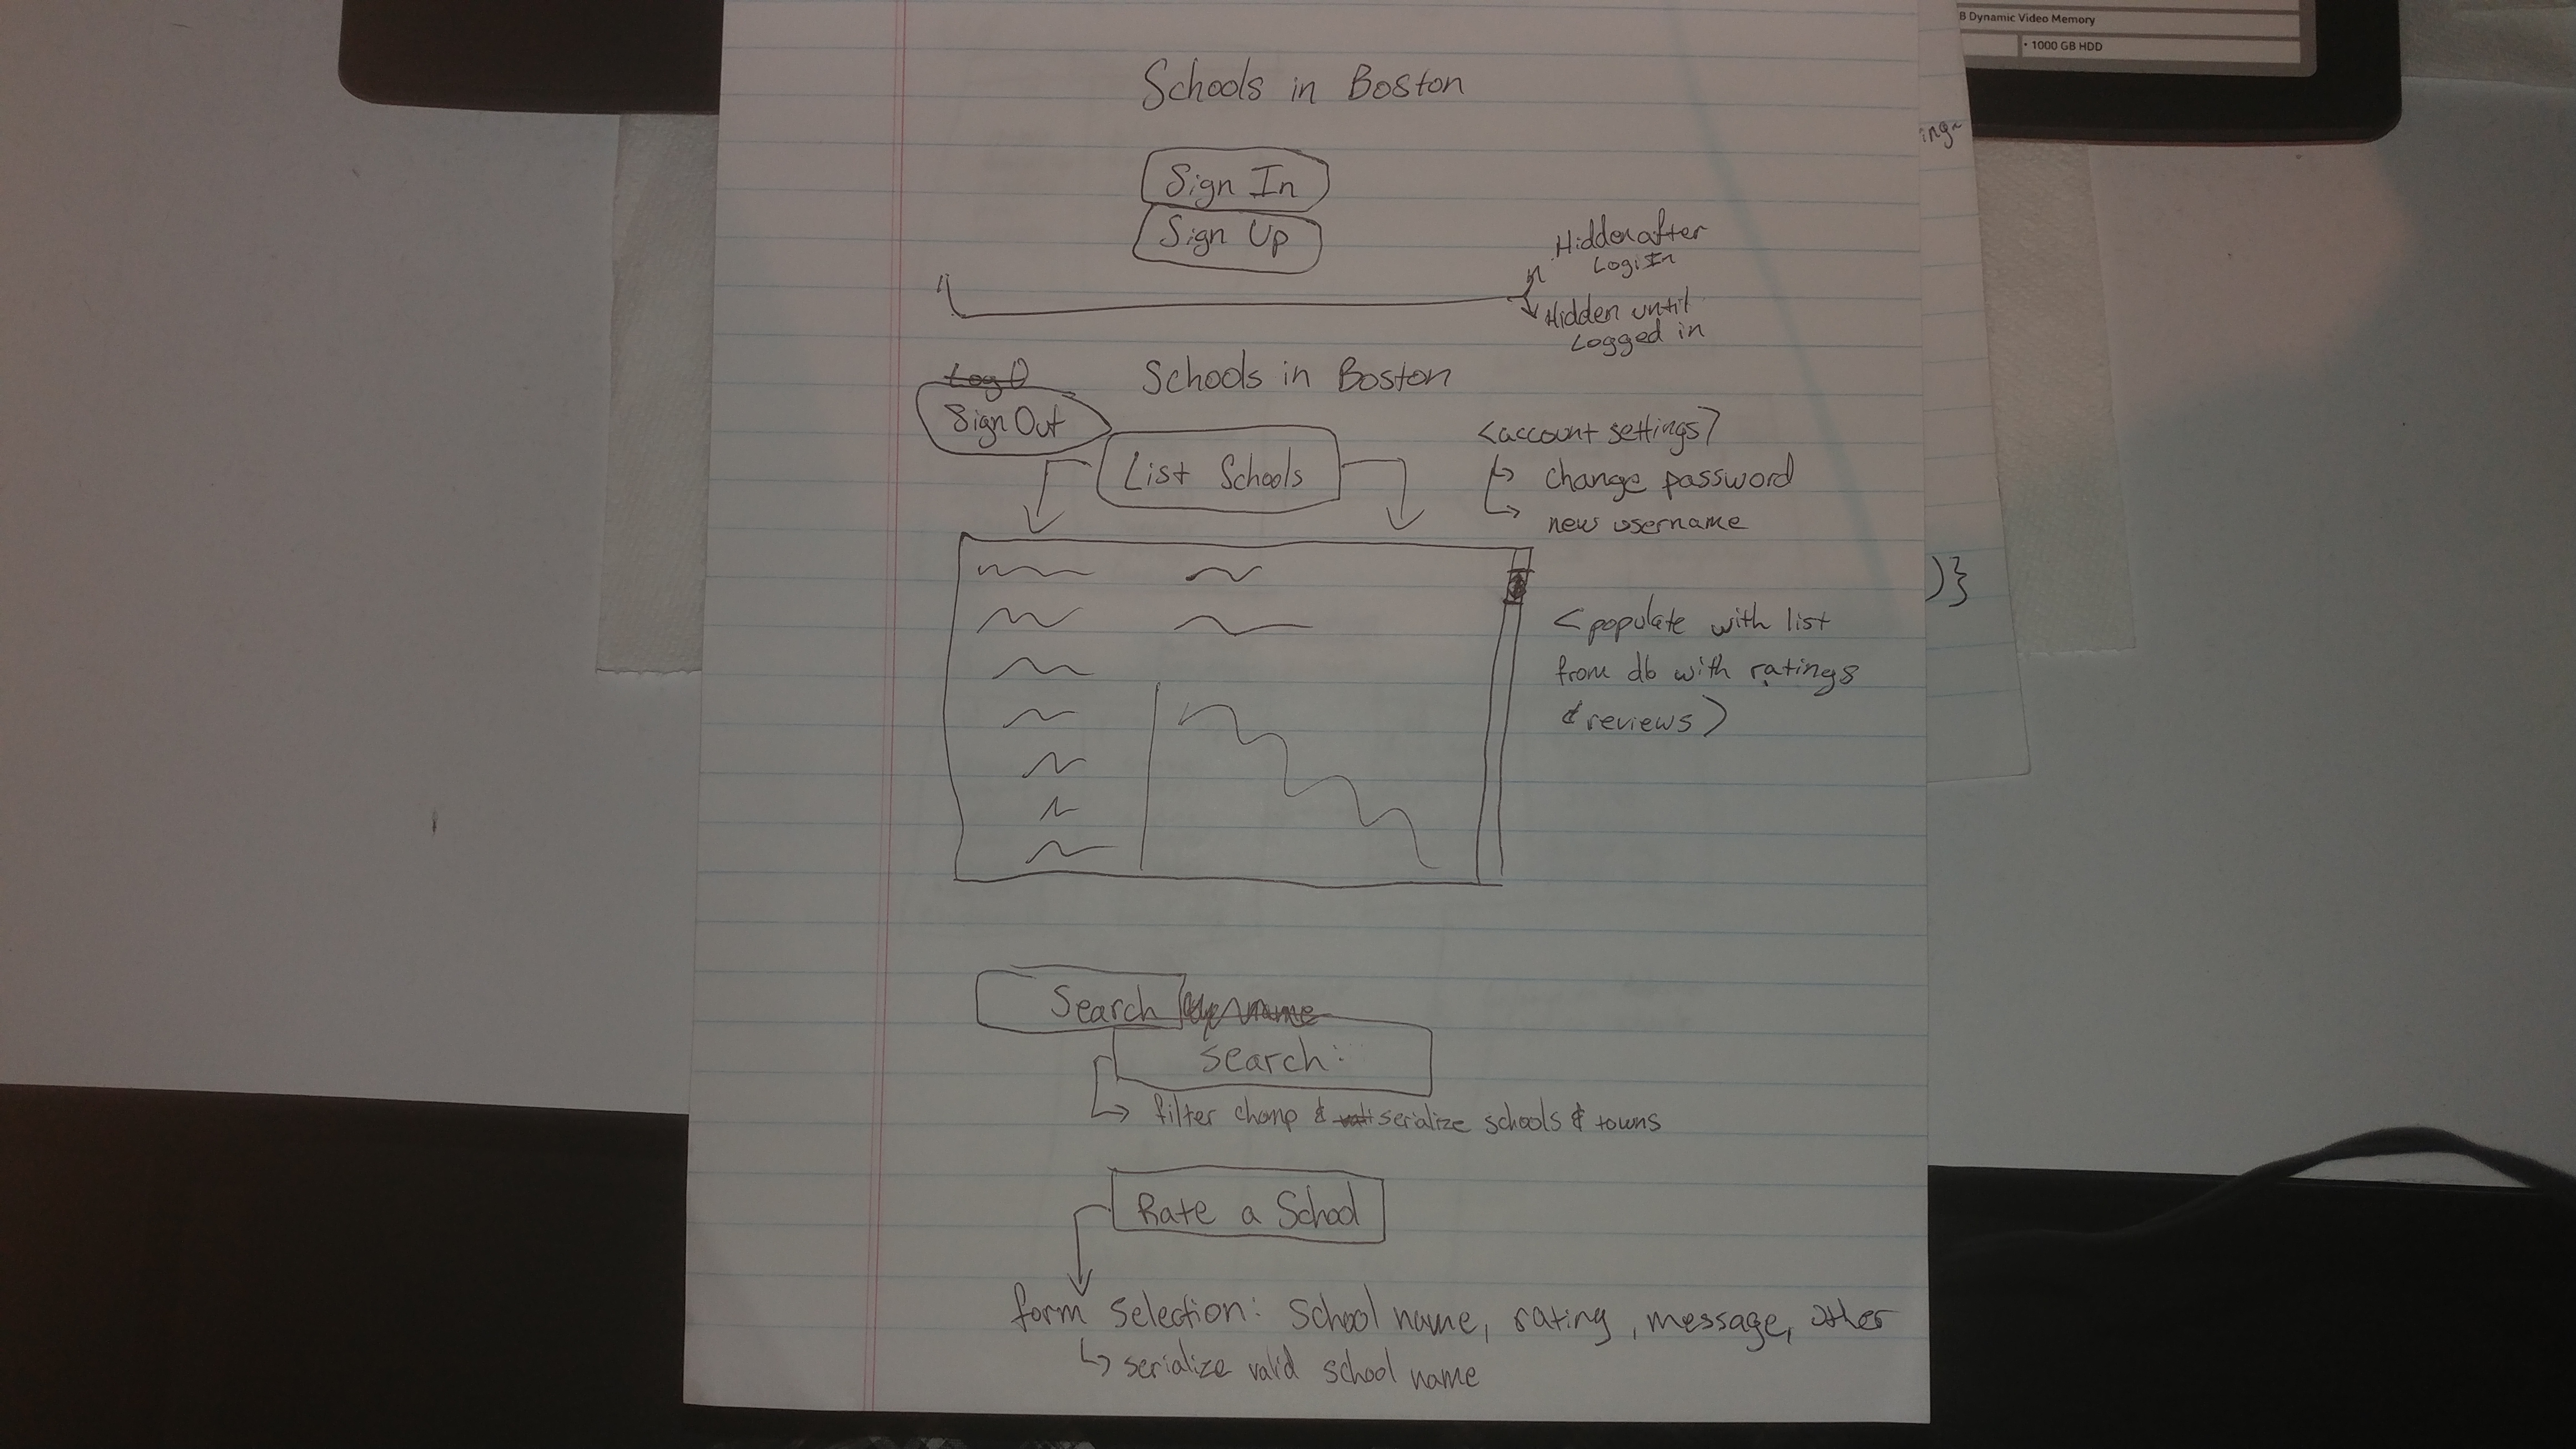 B Dynamic Video Memory
• 1000 GB HDD
ing~
Schools in Boston
Sign In
Sign Up
Hidden after
Logi In
Hidden until
Logged in
Log O
Schools in Boston
Sign Out
<account settings>
List Schools
change password
new username
)}
<populate with list
from db with ratings
& reviews>
Search by name
search:
filter chomp & serialize schools & towns
Rate a School
form selection: School name, rating, message, other
serialize valid school name